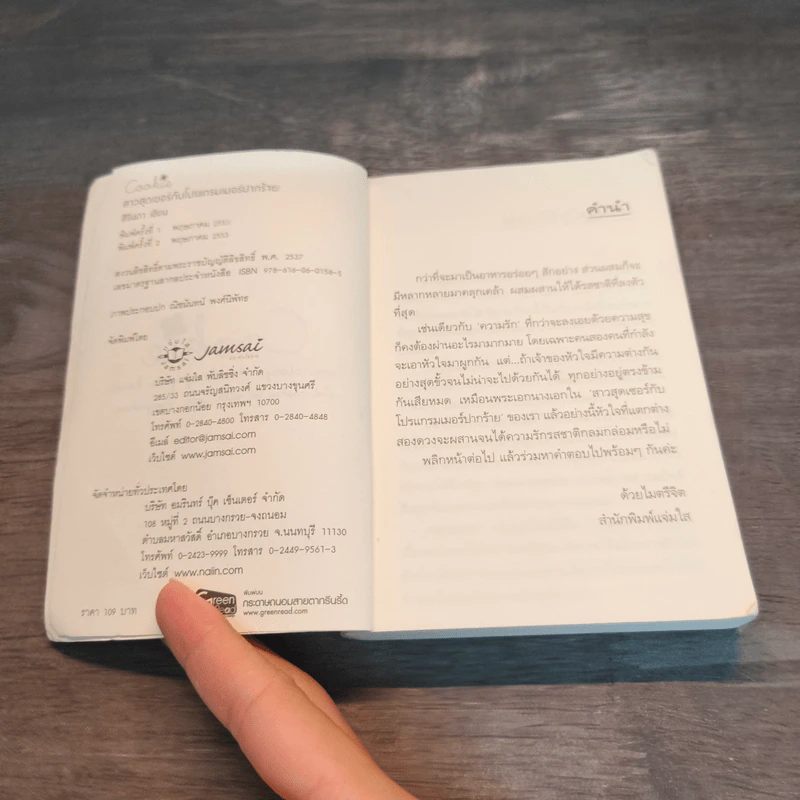 Cookie
สาวสุดเซอร์กับโปรแกรมเมอร์ปากร้าย
สิรินภา เขียน
พิมพ์ครั้งที่ 1 พฤษภาคม 2553
พิมพ์ครั้งที่ 2 พฤษภาคม 2553
สงวนลิขสิทธิ์ตามพระราชบัญญัติลิขสิทธิ์ พ.ศ. 2537
เลขมาตรฐานสากลประจำหนังสือ ISBN 978-616-06-0158-5
ภาพประกอบปก ณิชนันทน์ พงศ์นิพัทธ
จัดพิมพ์โดย
jamsai
บริษัท แจ่มใส พับลิชชิ่ง จำกัด
285/33 ถนนจรัญสนิทวงศ์ แขวงบางขุนศรี
เขตบางกอกน้อย กรุงเทพฯ 10700
โทรศัพท์ 0-2840-4800 โทรสาร 0-2840-4848
อีเมล์ editor@jamsai.com
เว็บไซต์ www.jamsai.com
จัดจำหน่ายทั่วประเทศโดย
บริษัท อมรินทร์ บุ๊ค เซ็นเตอร์ จำกัด
108 หมู่ที่ 2 ถนนบางกรวย-จงถนอม
ตำบลมหาสวัสดิ์ อำเภอบางกรวย จ.นนทบุรี 11130
โทรศัพท์ 0-2423-9999 โทรสาร 0-2449-9561-3
เว็บไซต์ www.naiin.com
ราคา 109 บาท
Green Read
พิมพ์บน
กระดาษถนอมสายตากรีนรี้ด
www.greenread.com
คำนำ
กว่าที่จะมาเป็นอาหารอร่อยๆ สักอย่าง ส่วนผสมก็จะ
มีหลากหลายมาคลุกเคล้า ผสมผสานให้ได้รสชาติที่ลงตัว
ที่สุด
เช่นเดียวกับ 'ความรัก' ที่กว่าจะลงเอยด้วยความสุข
ก็คงต้องผ่านอะไรมามากมาย โดยเฉพาะคนสองคนที่กำลัง
จะเอาหัวใจมาผูกกัน แต่...ถ้าเจ้าของหัวใจมีความต่างกัน
อย่างสุดขั้วจนไม่น่าจะไปด้วยกันได้ ทุกอย่างอยู่ตรงข้าม
กันเสียหมด เหมือนพระเอกนางเอกใน 'สาวสุดเซอร์กับ
โปรแกรมเมอร์ปากร้าย' ของเรา แล้วอย่างนี้หัวใจที่แตกต่าง
สองดวงจะผสานจนได้ความรักรสชาติกลมกล่อมหรือไม่
พลิกหน้าต่อไป แล้วร่วมหาคำตอบไปพร้อมๆ กันค่ะ
ด้วยไมตรีจิต
สำนักพิมพ์แจ่มใส